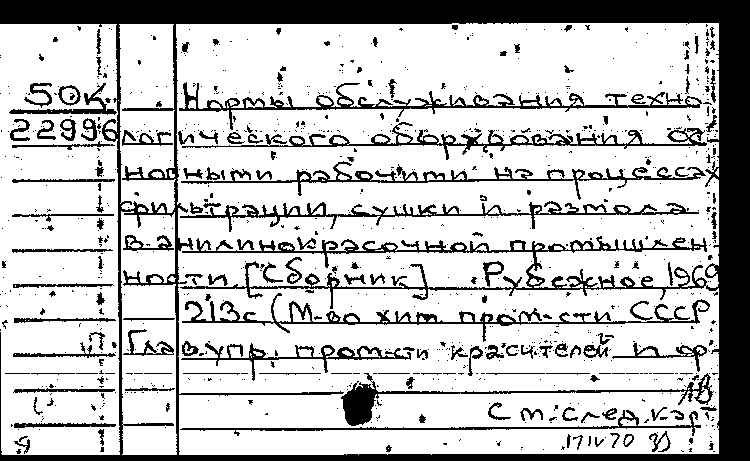 50к. Нормы обслуживания техно
22996 логического оборудования ос-
новными рабочими на процессах
фильтрации, сушки и размола
в анилинокрасочной промышлен
ности. [Сборник]. Рубежное, 1969
213с. (М-во хим. пром-сти СССР
Глав. упр. пром-сти красителей и ор-
См. след. карт
17 IV 70